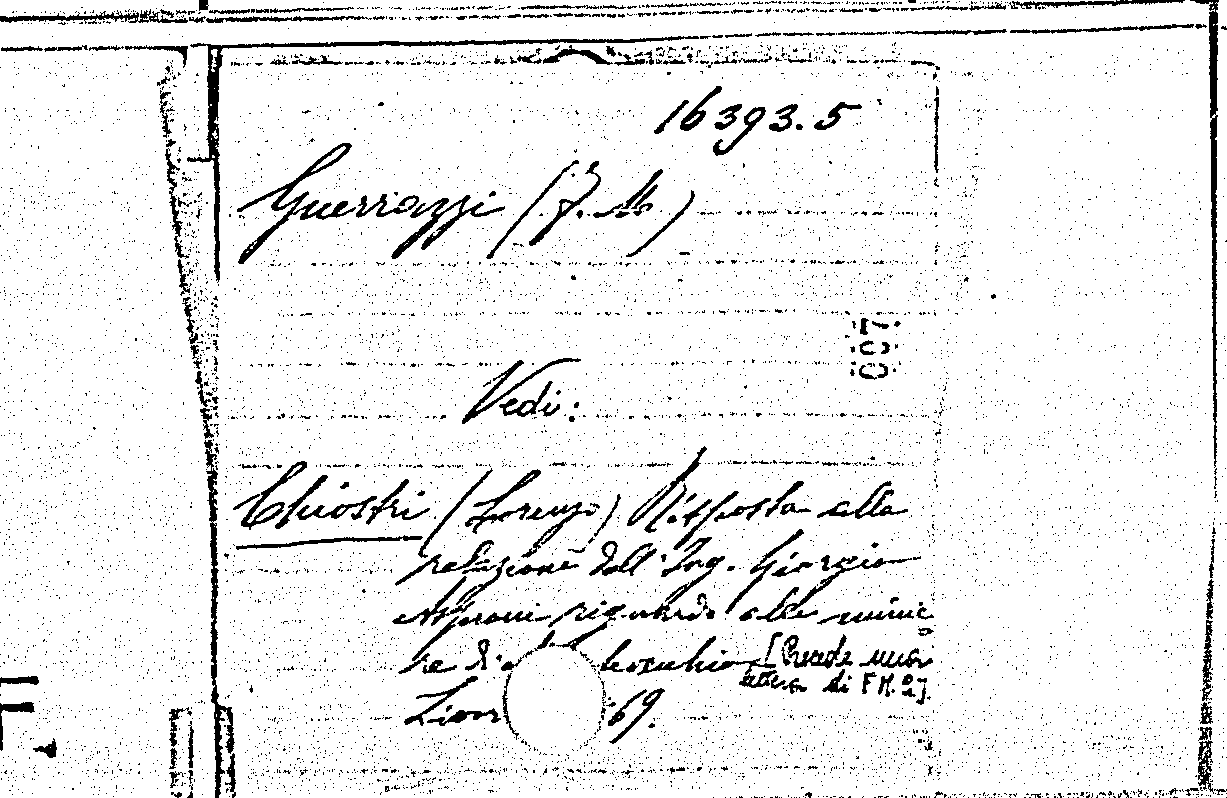 16393.5
Guerrazzi (F. M.)
007
Vedi:
Chiostri (Lorenzo) Risposta alla
relazione dell'Ing. Giorgio
Asproni riguardo alle minie
re di
[Precede una
lettera di F. M. G.]
Livor 69.